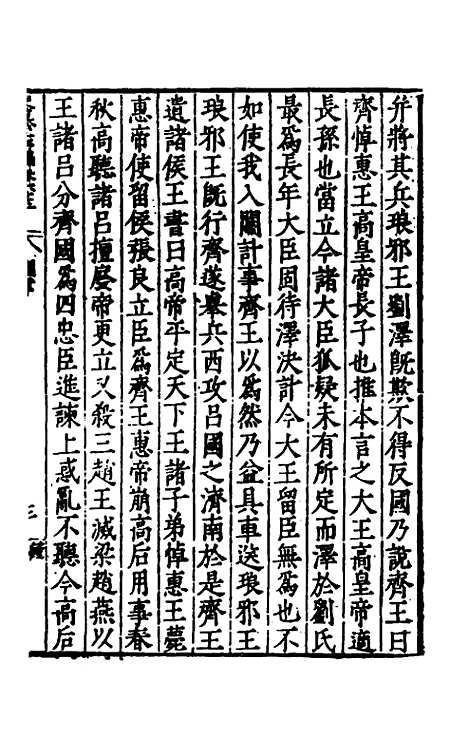 并將其兵琅邪王劉澤旣欺不得反國乃說齊王曰
齊悼惠王高皇帝長子也推本言之大王高皇帝適
長孫也當立今諸大臣狐疑未有所定而澤於劉氏
最爲長年大臣固待澤決計今大王留臣無爲也不
如使我入關計事齊王以爲然乃益具車送琅邪王
琅邪王旣行齊遂舉兵西攻呂國之濟南於是齊王
遺諸侯王書曰高帝平定天下王諸子弟悼惠王薨
惠帝使留侯張良立臣爲齊王惠帝崩高后用事春
秋高聽諸呂擅廢帝更立又殺三趙王滅梁趙燕以
王諸呂分齊國爲四忠臣進諫上惑亂不聽今高后
三